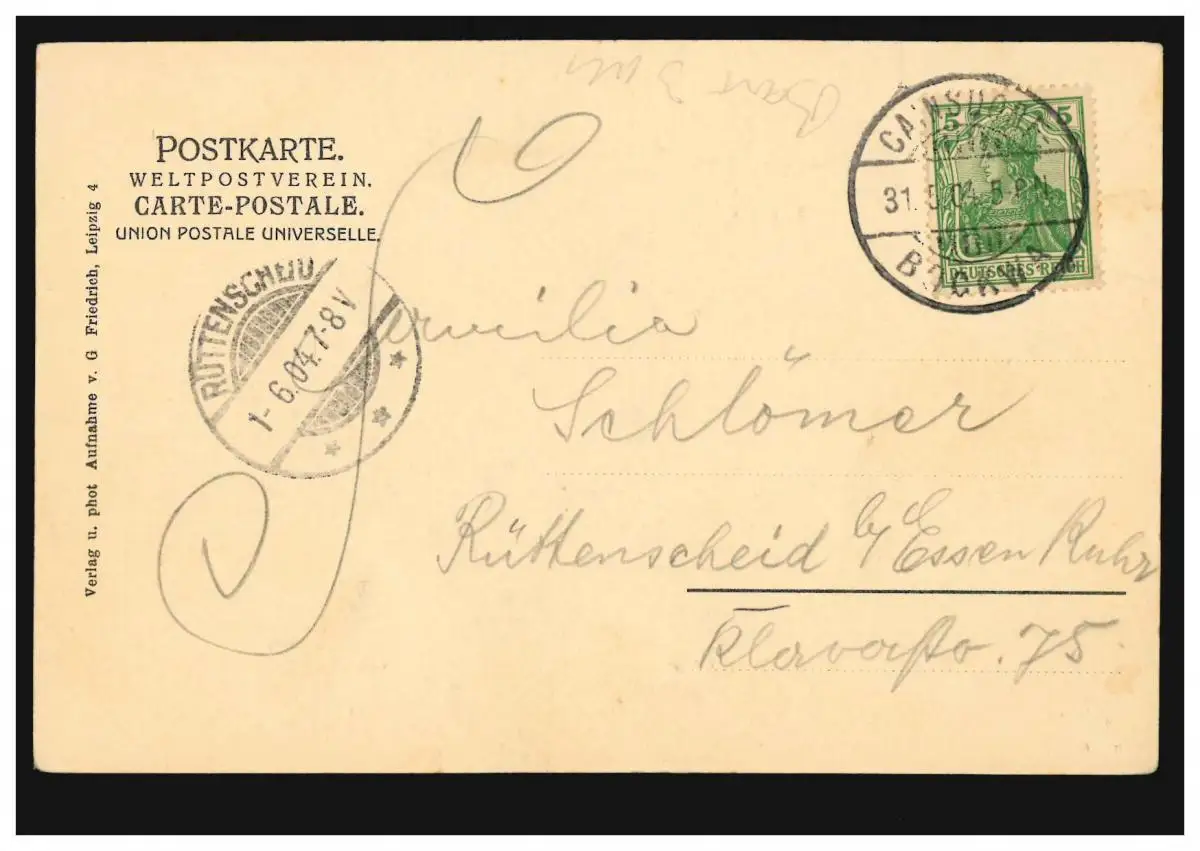 POSTKARTE.
WELTPOSTVEREIN.
CARTE-POSTALE.
UNION POSTALE UNIVERSELLE.
Verlag u. phot Aufnahme v. G Friedrich, Leipzig 4
CAINSDORF
31.5.04. 5-6N.
BOCKWA
5 5
DEUTSCHES REICH
RÜTTENSCHEID
1-6.04.7-8V
Schlömer
Rüttenscheid b/ Essen Ruhr
Klarastr. 75.